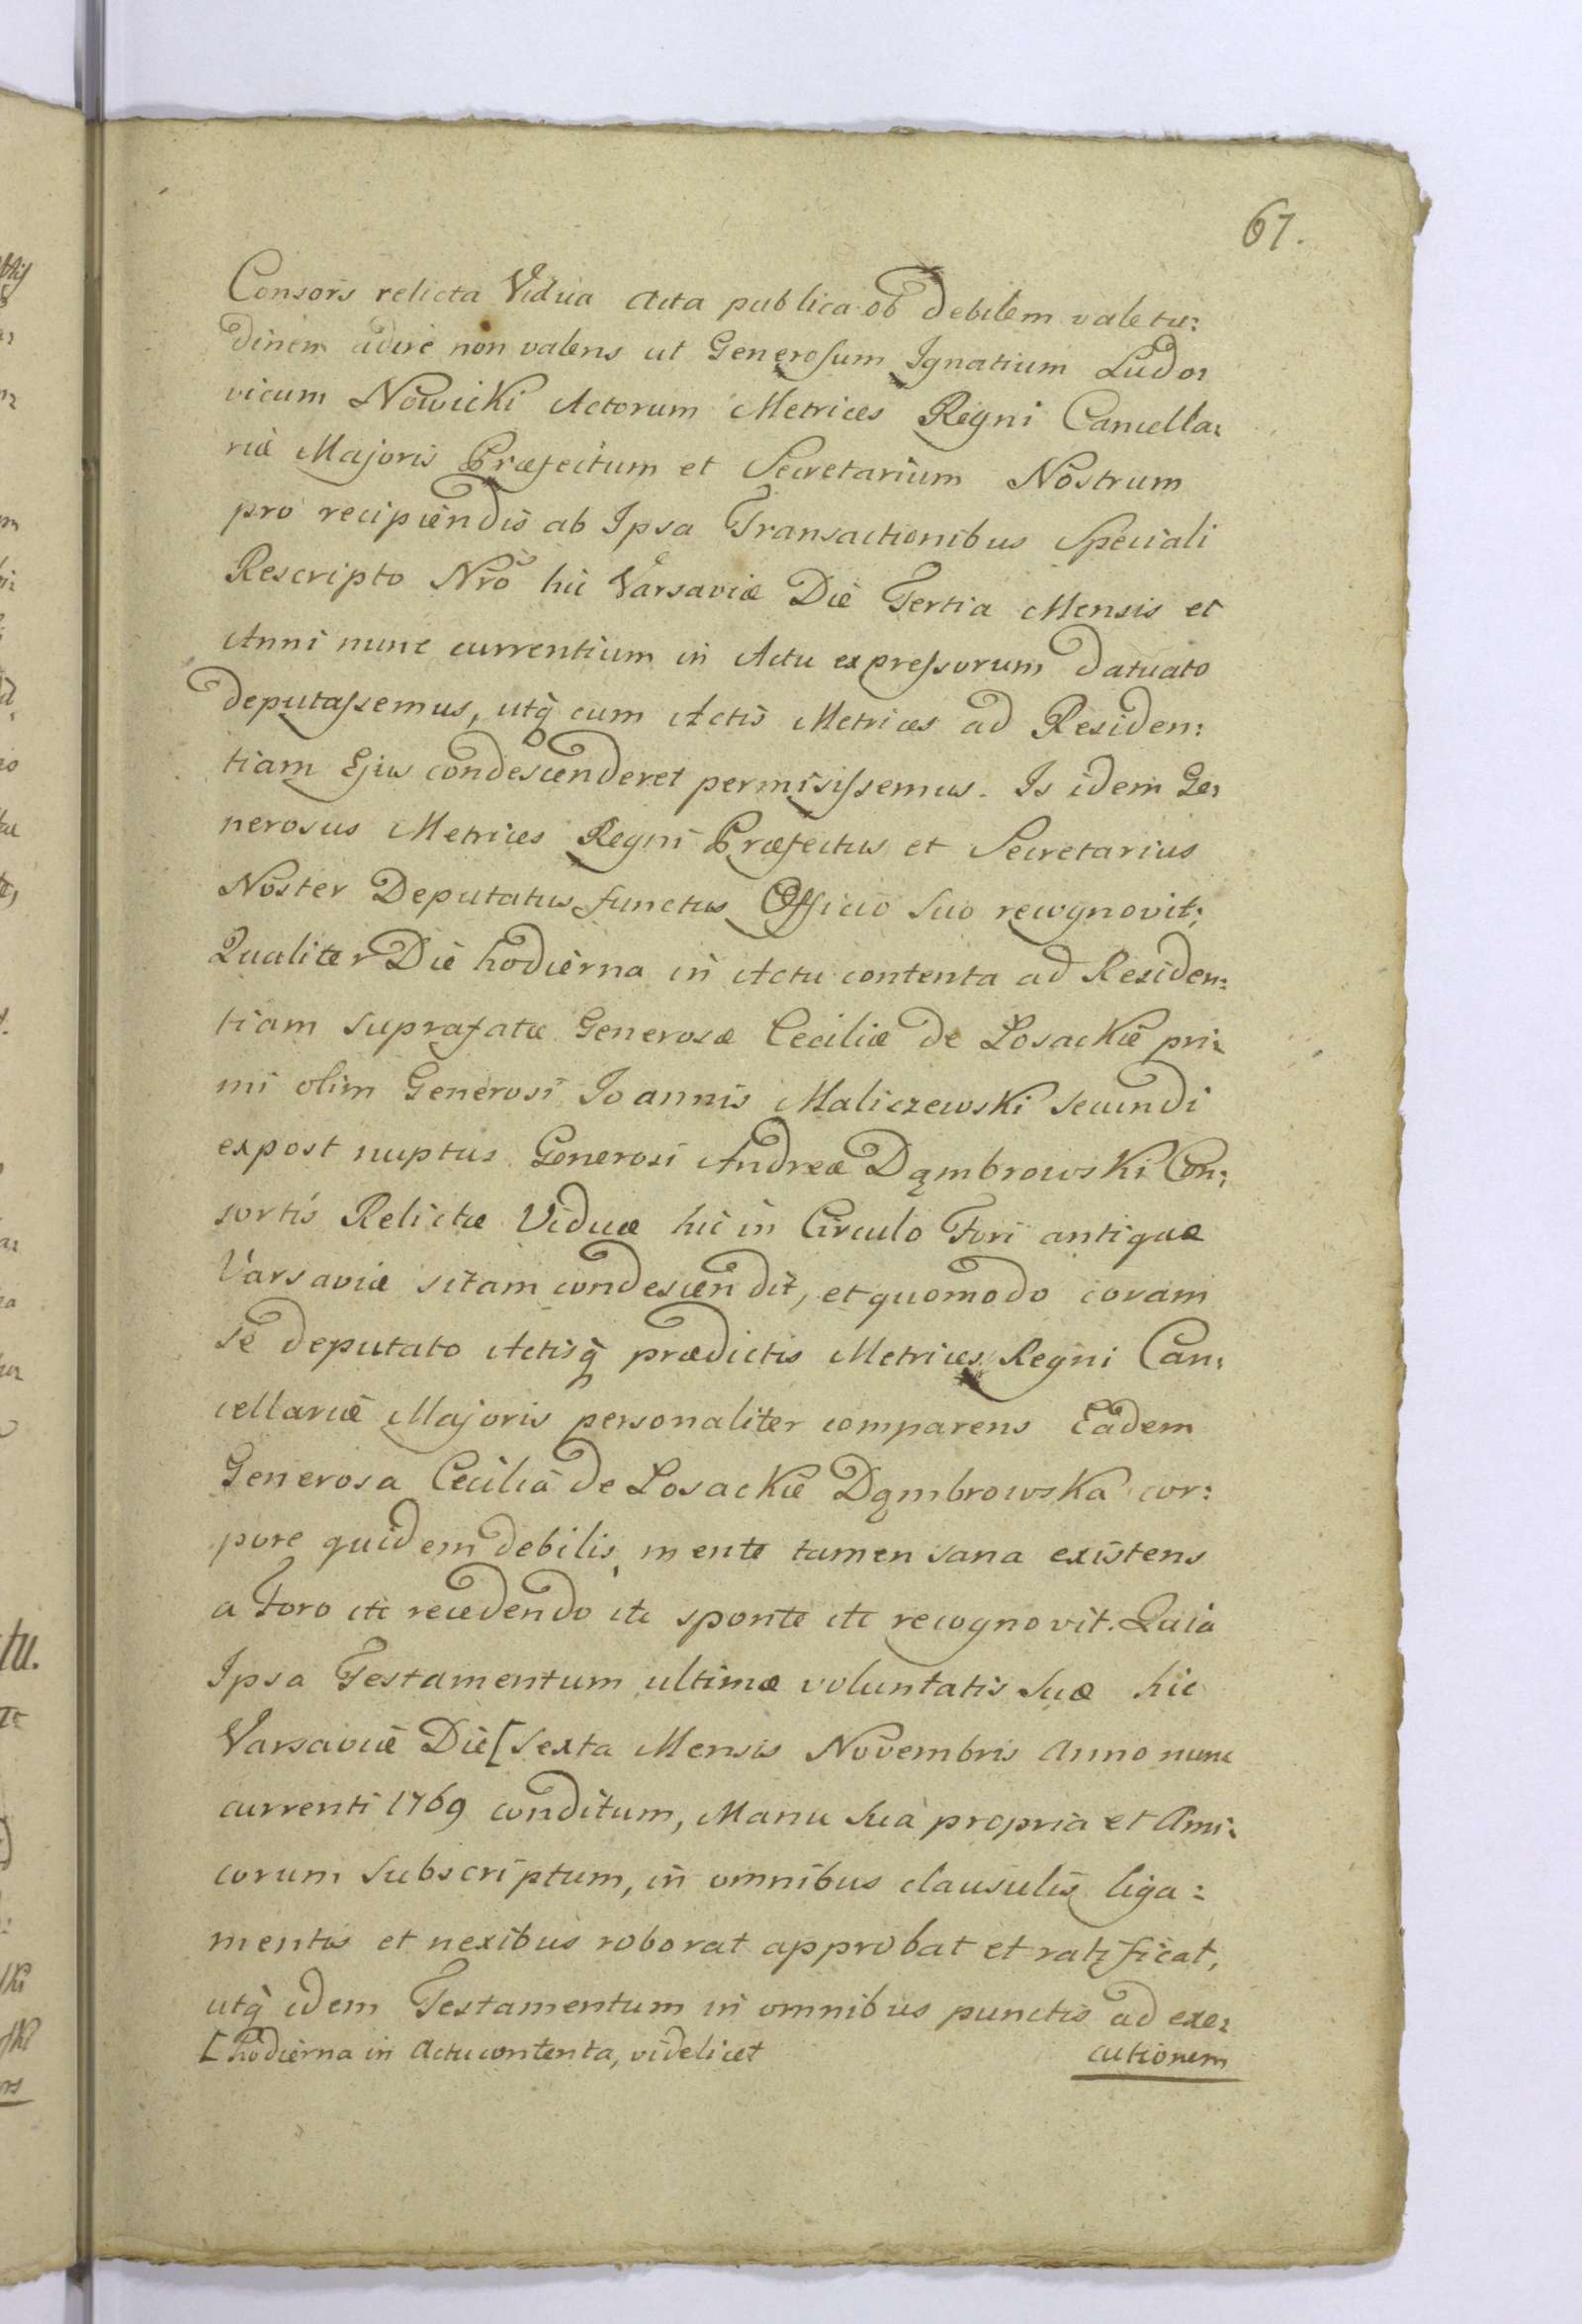 67.
Consors relicta Vidua Acta publica ob debilem valetu:
dinem adire non valens ut Generosum Ignatium Ludo:
vicum Nowicki Actorum Metrices Regni Cancella:
riæ Majoris Præfectum et Secretarium Nostrum
pro recipiendis ab Ipsa Transactionibus Speciali
Rescripto Nrõ hic Varsaviæ Die Tertia Mensis et
Anni nunc currentium in Actu expressorum datuato
deputassemus, utq̀ cum Actis Metrices ad Residen:
tiam Ejus condescenderet permisissemus. Is idem Ge:
nerosus Metrices Regni Præfectus et Secretarius
Noster Deputatus functus Officio suo recognovit:
Qualiter Die hodierna in Actu contenta ad Residen:
tiam suprafatæ Generosæ Ceciliæ de Losackie pri:
mi olim Generosi Joannis Maliczewski secundi
expost nuptus Generosi Andreæ Dąmbrowski Con:
sortis Relictæ Viduæ hic in Circulo Fori antiquæ
Varsaviæ sitam condescendit, et quomodo coram
se deputato Actisq̀ prædictis Metrices Regni Can:
cellariæ Majoris personaliter comparens Eadem
Generosa Cecilia de Losackie Dąmbrowska cor:
pore quidem debilis, mente tamen sana existens
a Foro etc recedendo etc sponte etc recognovit. Quia
Ipsa Testamentum ultimæ voluntatis suæ hic
Varsaviæ Die [sexta Mensis Novembris Anno nunc
currenti 1769 conditum, Manu sua propria et Ami:
corum subscriptum, in omnibus clausulis liga:
mentis et nexibus roborat approbat et ratificat,
utq̀ idem Testamentum in omnibus punctis ad exe:
[hodierna in Actu contenta, videlicet
cutionem